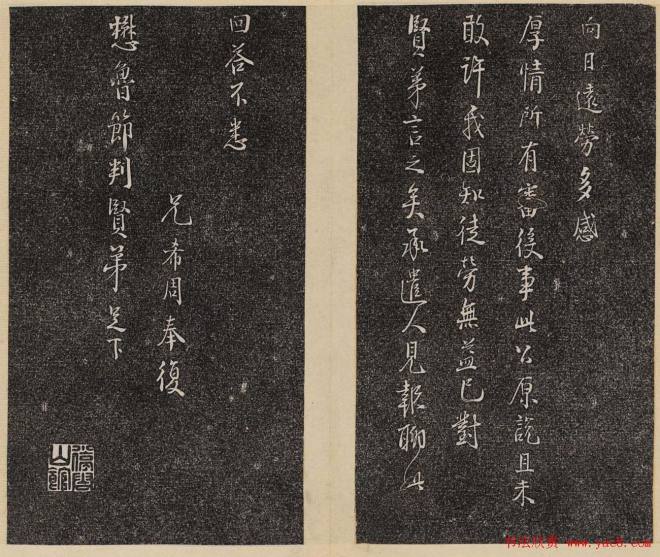 向日遠勞多感
厚情所有審後事此公原說且未
敢許我固知徒勞無益已對
賢弟言之矣承遣人見報聊此
回答不悉
兄希周奉復
懋魯節判賢弟足下
书法欣赏 www.yac8.com